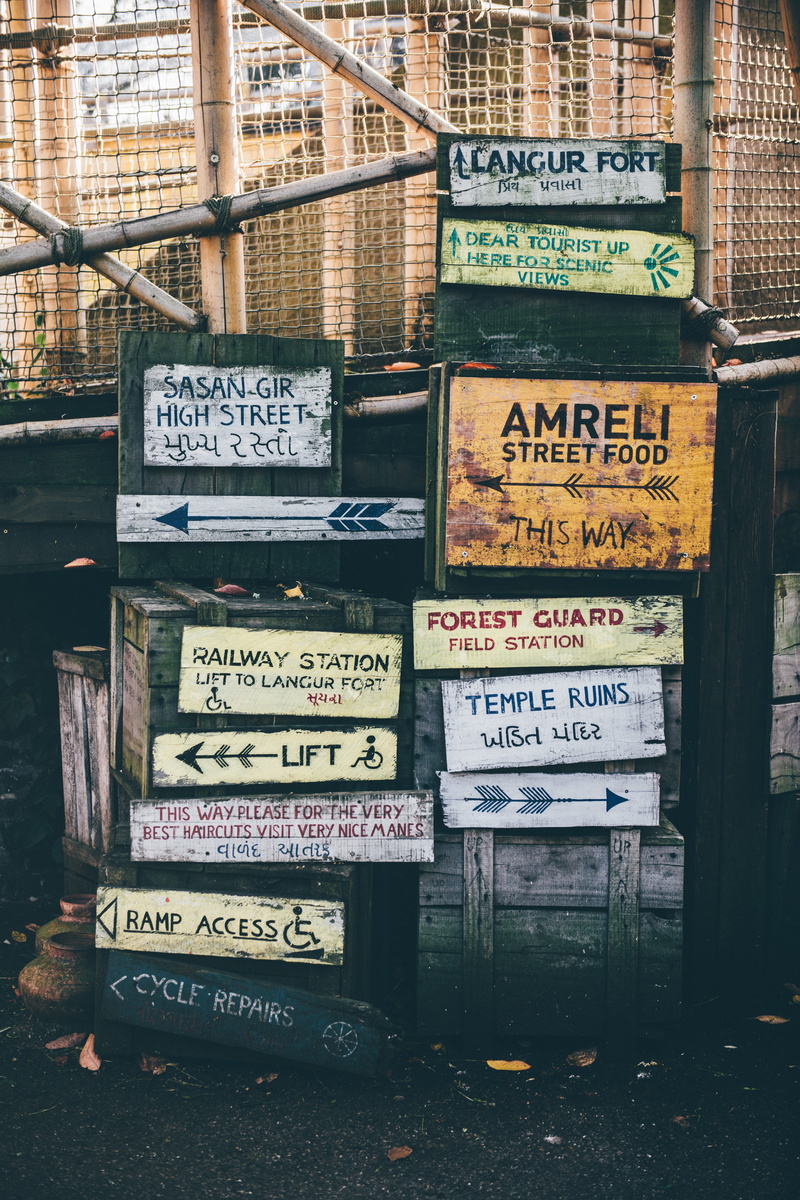 LANGUR FORT
પ્રિય પ્રવાસી
DEAR TOURIST UP
HERE FOR SCENIC
VIEWS
SASAN-GIR
HIGH STREET
મુખ્ય રસ્તો
AMRELI
STREET FOOD
THIS WAY
RAILWAY STATION
LIFT TO LANGUR FORT
સૂચના
LIFT
THIS WAY PLEASE FOR THE VERY
BEST HAIRCUTS VISIT VERY NICE MANES
વાળંદ આતરફ
RAMP ACCESS
CYCLE REPAIRS
FOREST GUARD
FIELD STATION
TEMPLE RUINS
ખંડિત મંદિર
UP
UP